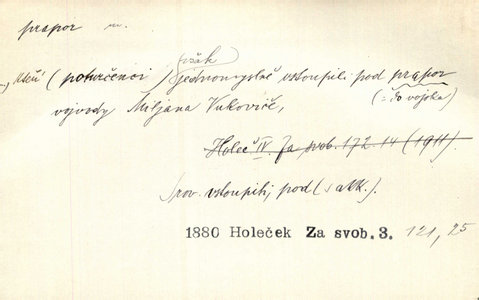 prapor m.
však
„Ašći (poturčenci) jednomyslně vstoupili pod prapor
vojvody Miljana Vukoviče, (= do vojska)
Holeč IV. Za svob. 172. 14 (1911).
Srov. vstoupiti, pod (s akk.).
1880 Holeček Za svob. 3. 121, 25